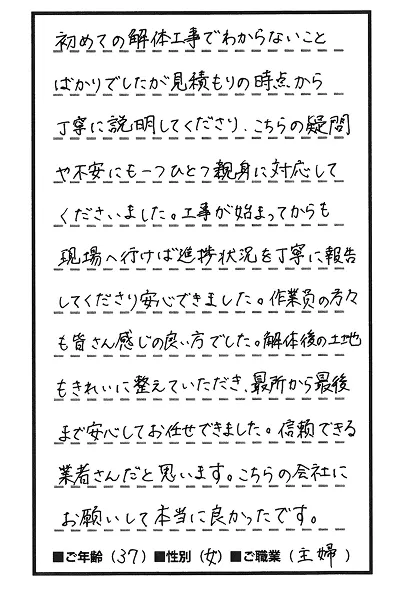 初めての解体工事でわからないこと
ばかりでしたが見積もりの時点から
丁寧に説明してくださり、こちらの疑問
や不安にも一つひとつ親身に対応して
くださいました。工事が始まってからも
現場へ行けば進捗状況を丁寧に報告
してくださり安心できました。作業員の方々
も皆さん感じの良い方でした。解体後の土地
もきれいに整えていただき、最所から最後
まで安心してお任せできました。信頼できる
業者さんだと思います。こちらの会社に
お願いして本当に良かったです。
■ご年齢（37）■性別（女）■ご職業（主婦）